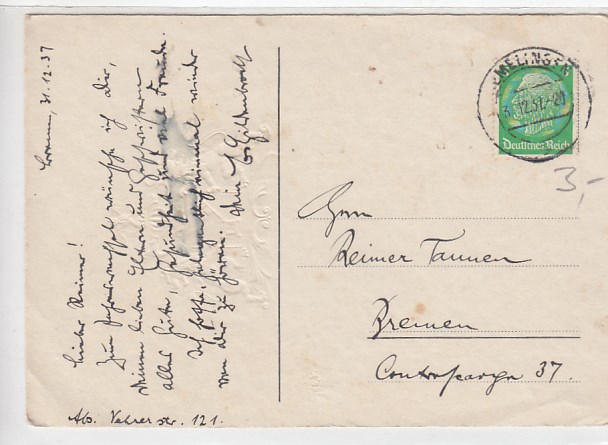 Bremen, 31.12.37
Lieber Reimer!
Zum Jahreswechsel wünsche ich Dir,
Deinen lieben Eltern und Geschwistern
alles Gute, Gesundheit und viel Freude.
Ich hoffe, gelegentlich einmal wieder
von Dir zu hören. Dein
Abs. Vahrer Str. 121.
HEMELINGEN
31.12.37.-20
6
Deutsches Reich
3,-
Herrn
Reimer Tannen
Bremen
Contrescarpe 37.